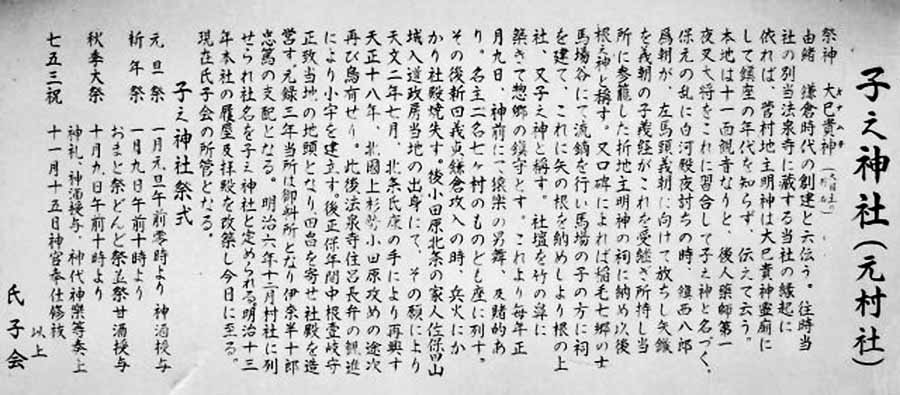 子之神社(元村社)
祭神 大已貴神
由緒 鎌倉時代の創建と云伝う。往時当
社の別当法泉寺に蔵する当社の縁起に
依れば、菅村地主明神は大已貴神霊廟に
して鎮座の年代を知らず、伝えて云う。
本地は十一面観音なりと、後人薬師第一
夜叉大将をこれに習合して子之神と名づく、
保元の乱に白河殿夜討ちの時、鎮西八郎
為朝が、左馬頭義朝に向けて放ちし矢鏃
を義朝の子義経がこれを受継ぎ所持し当
所に参籠した折地主明神の祠に納め以後
根之神と称す。又口碑によれば稲毛七郷の士
馬場谷にて流鏑を行い馬場の子の方に祠
を建て、これに矢の根を納めしより根の上
社、又子之神と称す。社壇を竹の
築きて惣郷の鎮守とす。これより毎年正
月九日、神前にて猿楽の男舞、及賭的あ
り。名主二名七ヶ村のものども座に列す。
その後新田義貞鎌倉攻入の時、兵火にか
かり社殿焼失す。後小田原北条の家人佐保田山
城入道政房当地の出身にて、その願により
天文二年七月、北条氏康の手により再興す
天正十八年、北国上杉勢小田原攻めの途次
再び烏有せり。此後法泉寺住呂長弁の観進
により小宇を建立す、後正保年間中根壹岐守
正致当地の地頭となり田畠を寄せ社殿を造
営す元録三年当所は御料所となり伊奈半十郎
忠篤の支配となる。明治六年十二月村社に列
せられ社名を子之神社と定められる。明治十三
年本社の履屋及拝殿を改築し今日に至る。
現在氏子会の所管となる。
子之神社祭式
元旦祭 一月元旦午前零時より 神酒授与
新年祭 一月九日午前十時より
おまと祭どんど祭並祭甘酒授与
秋季大祭 十月九日午前十時より
神札、神酒授与、神代神楽等奏上
七五三祝 十一月十五日神宮奉仕修祓
以上
氏子会